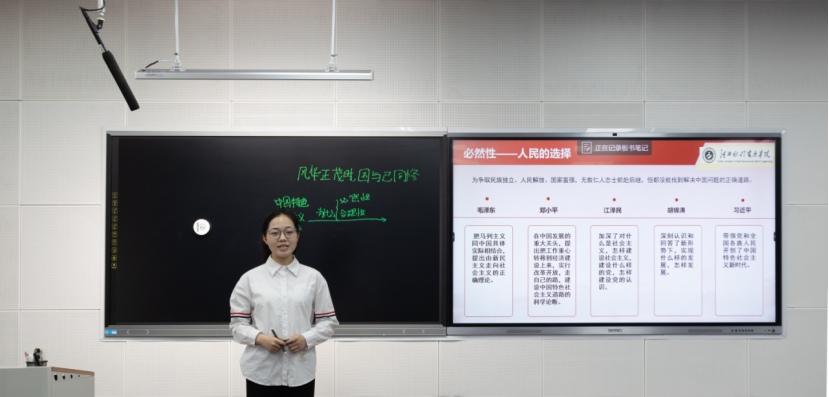 风华正茂时,因与己同修
中国特色
必然性
合理性
必然性——人民的选择
正在记录板书笔记
为争取民族独立、人民解放、国家富强,无数仁人志士前赴后继,但都没能找到解决中国问题的正确道路。
毛泽东
邓小平
江泽民
胡锦涛
习近平
把马列主义
同中国具体
实际相结合,
提出由新民
主义走向社
会主义的正
确理论。
在中国发展的
重大关头,提
出把工作重心
转移到经济建
设上来,实行
改革开放,走
自己的路,建
设中国特色社
会主义道路的
科学论断。
加深了对什
么是社会主
义,怎样建
设社会主义,
建设什么样
的党,怎样
建设党的认
识。
深刻认识和
回答了新形
势下,实现
什么样的发
展,怎样发
展。
带领党和全
国各族人民
开创了中国
特色社会主
义新时代。